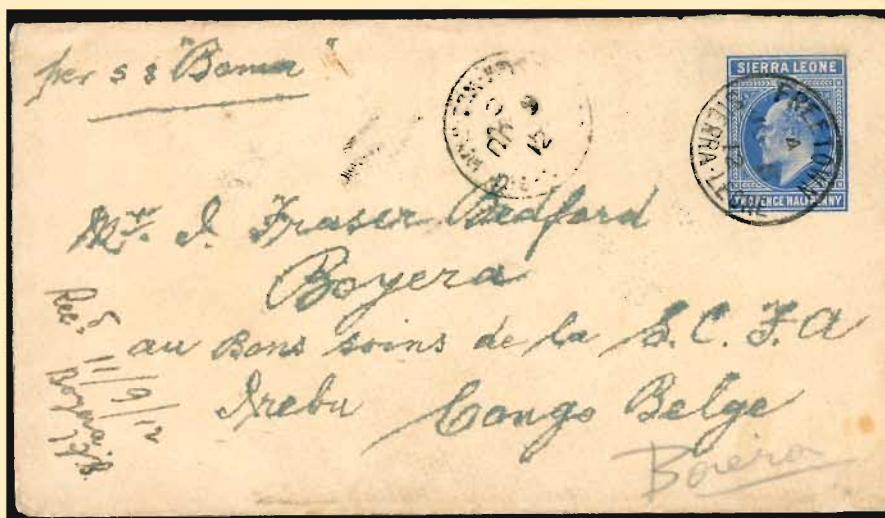 per s s "Boma"
SIERRA LEONE
FREETOWN
SIERRA LEONE
TWOPENCE HALFPENNY
I. Fraser Bedford
Boyera
au Bons soins de la S. C. F. A
Irebu Congo Belge
Rec.d
11/9/12
Boyera
Boera